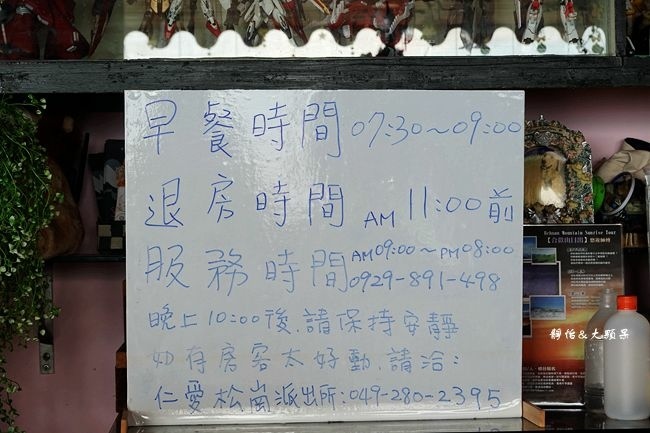 早餐時間 07:30~09:00
退房時間 AM 11:00前
服務時間 AM09:00~PM08:00
0929-891-498
晚上10:00後,請保持安靜
如有房客太好動,請洽:
仁愛松崗派出所:049-280-2395
Hehuan Mountain Sunrise Tour
【合歡山日出】
靜怡&大顆呆